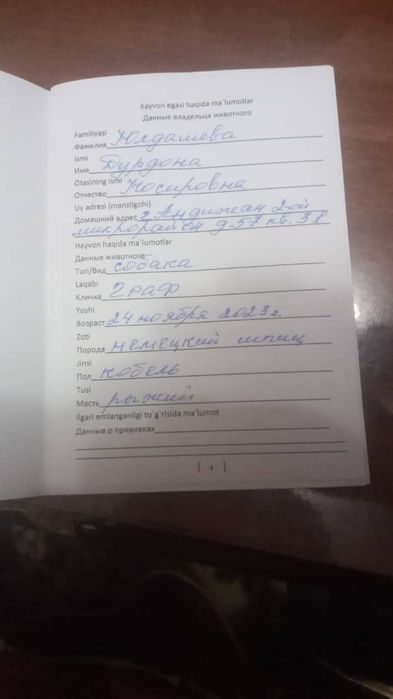 Xayvon egasi haqida ma`lumotlar
Данные владельца животного
Familiyasi
Фамилия Юлдашева
Ismi
Имя Дурдона
Otasining ismi
Отчество Носировна
Uy adresi (manzilgohi)
Домашний адрес г Андижан 2-ой
микрорайон д 37 кв. 38
Hayvon haqida ma`lumotlar
Данные животного
Turi/Вид собака
Laqabi
Кличка Граф
Yoshi
Возраст 24 ноября 2023г
Zoti
Порода немецкий шпиц
Jinsi
Пол кобель
Tusi
Масть рыжий
Ilgari emlanganligi to`g`risida ma`lumot
Данные о прививках
[ 1 ]